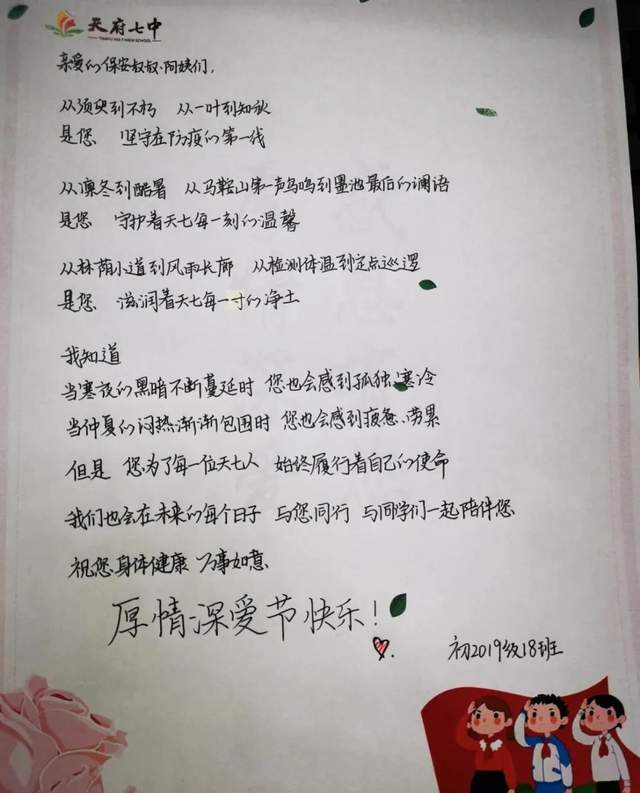 天府七中
TIANFU NO.7 HIGH SCHOOL
亲爱的保安叔叔、阿姨们，
从须臾到不朽 从一叶到知秋
是您 坚守在防疫的第一线
从凛冬到酷暑 从马鞍山第一声鸟鸣到墨池最后的涠语
是您 守护着天七每一刻的温馨
从林荫小道到风雨长廊 从检测体温到定点巡逻
是您 滋润着天七每一寸的净土
我知道
当寒夜的黑暗不断蔓延时 您也会感到孤独、寒冷
当仲夏的闷热渐渐包围时 您也会感到疲惫、劳累
但是 您为了每一位天七人 始终履行着自己的使命
我们也会在未来的每个日子 与您同行 与同学们一起陪伴您
祝您身体健康 万事如意
厚情深爱节快乐！
初2019级18班